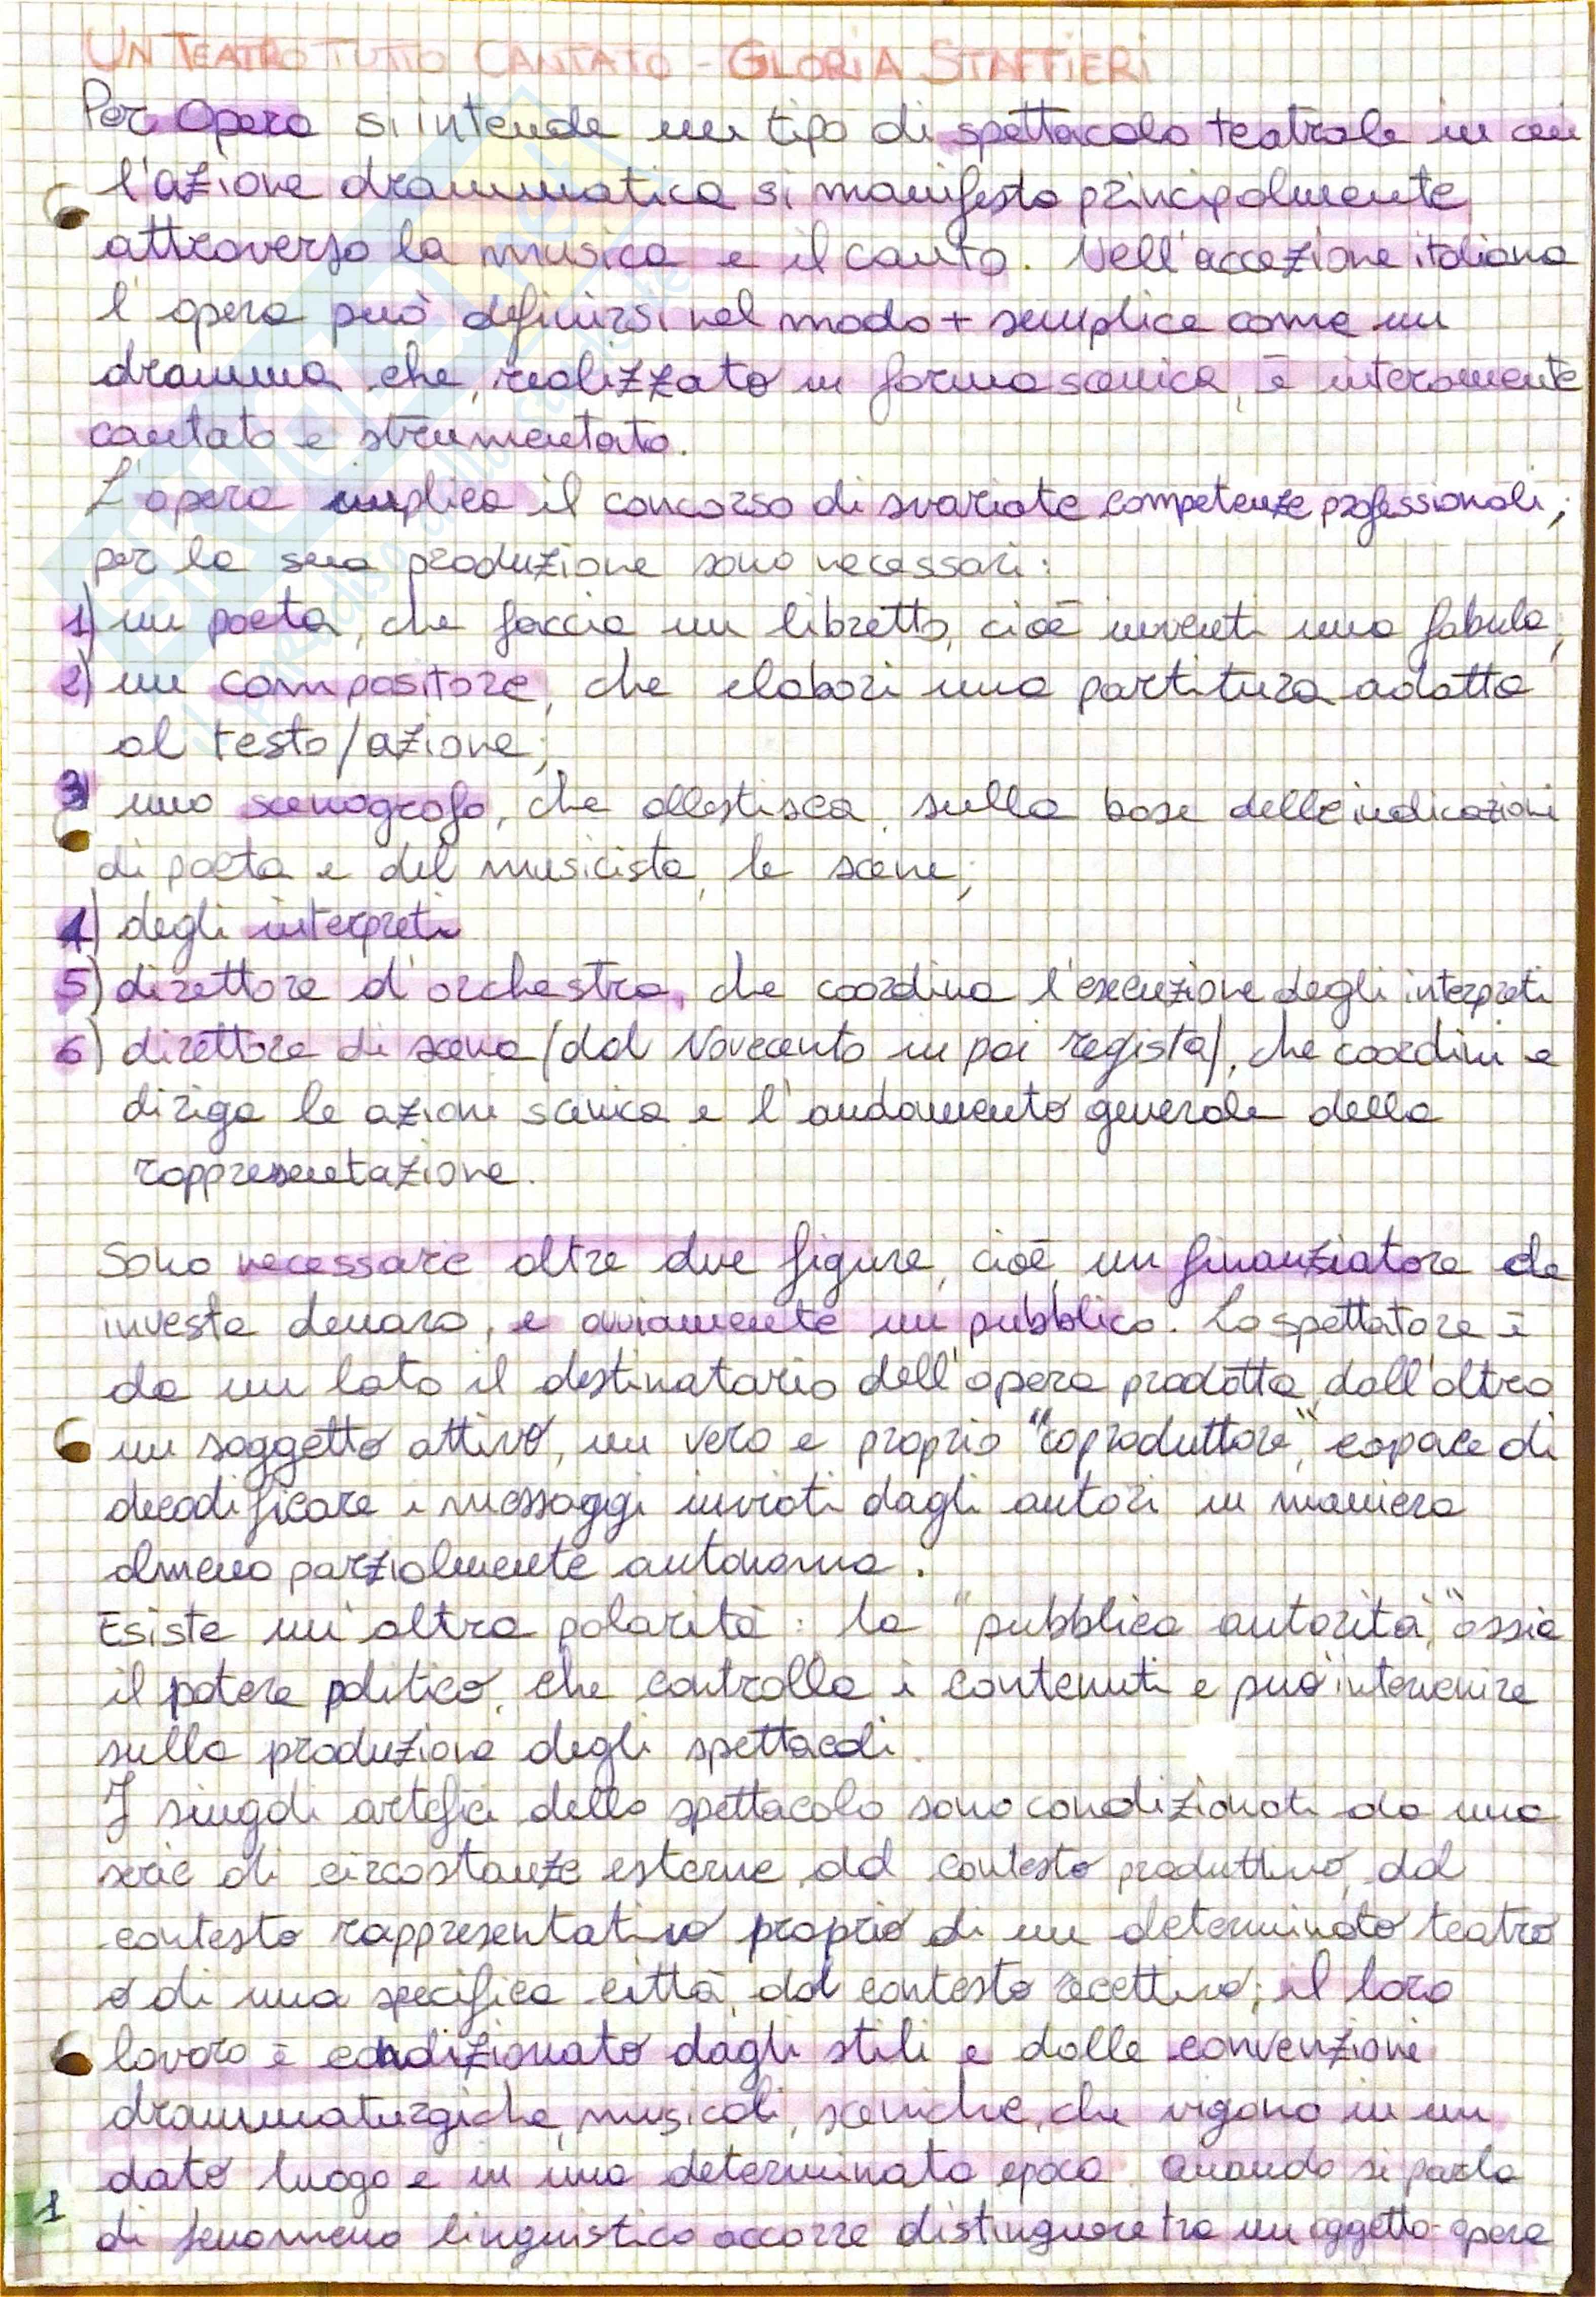 UN TEATRO TUTTO CANTATO - GLORIA STAFFIERI
Per Opera si intende un tipo di spettacolo teatrale in cui
l'azione drammatica si manifesta principalmente
attraverso la musica e il canto. Nell'accezione italiana
l'opera può definirsi nel modo + semplice come un
dramma che, realizzato in forma scenica, è interamente
cantato e strumentato.
L'opera implica il concorso di svariate competenze professionali;
per la sua produzione sono necessari:
1) un poeta, che faccia un libretto, cioè inventi una fabula;
2) un compositore, che elabori una partitura adatta
al testo/azione;
3 uno scenografo, che allestisca, sulla base delle indicazioni
di poeta e del musicista, le scene;
4) degli interpreti
5) direttore d'orchestra, che coordina l'esecuzione degli interpreti
6) direttore di scena (dal Novecento in poi regista), che coordini e
diriga le azioni scenica e l'andamento generale della
rappresentazione.
Sono necessarie altre due figure, cioè, un finanziatore che
investe denaro, e ovviamente un pubblico. Lo spettatore è
da un lato il destinatario dell'opera prodotta, dall'altro
un soggetto attivo, un vero e proprio "coproduttore", capace di
decodificare i messaggi inviati dagli autori in maniera
almeno parzialmente autonoma.
Esiste un'altra polarità: la "pubblica autorità", ossia
il potere politico, che controlla i contenuti e può intervenire
sulla produzione degli spettacoli.
I singoli artefici dello spettacolo sono condizionati da una
serie di circostanze esterne, dal contesto produttivo, dal
contesto rappresentativo proprio di un determinato teatro
o di una specifica città, dal contesto recettivo; il loro
lavoro è condizionato dagli stili e dalle convenzioni
drammaturgiche, musicali, sceniche, che vigono in un
dato luogo e in una determinata epoca. Quando si parla
di fenomeno linguistico occorre distinguere tra un oggetto-opera
1